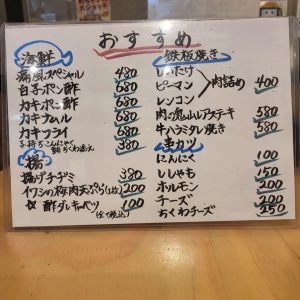 おすすめ
海鮮
痛風スペシャル 480
白子ポン酢 680
カキポン酢 680
カキフライ 680
子持ちこんにゃく 380
揚
揚げチヂミ 380
イワシの梅肉天ぷら(1枚) 200
酢ダレキャベツ 100
(全て税込)
鉄板焼き
しいたけ
ピーマン 肉詰め 400
レンコン
肉の亀山レアステーキ 580
牛ハラミタレ焼き 580
串カツ
にんにく 100
ししゃも 150
ホルモン 200
チーズ 200
ちくわチーズ 250